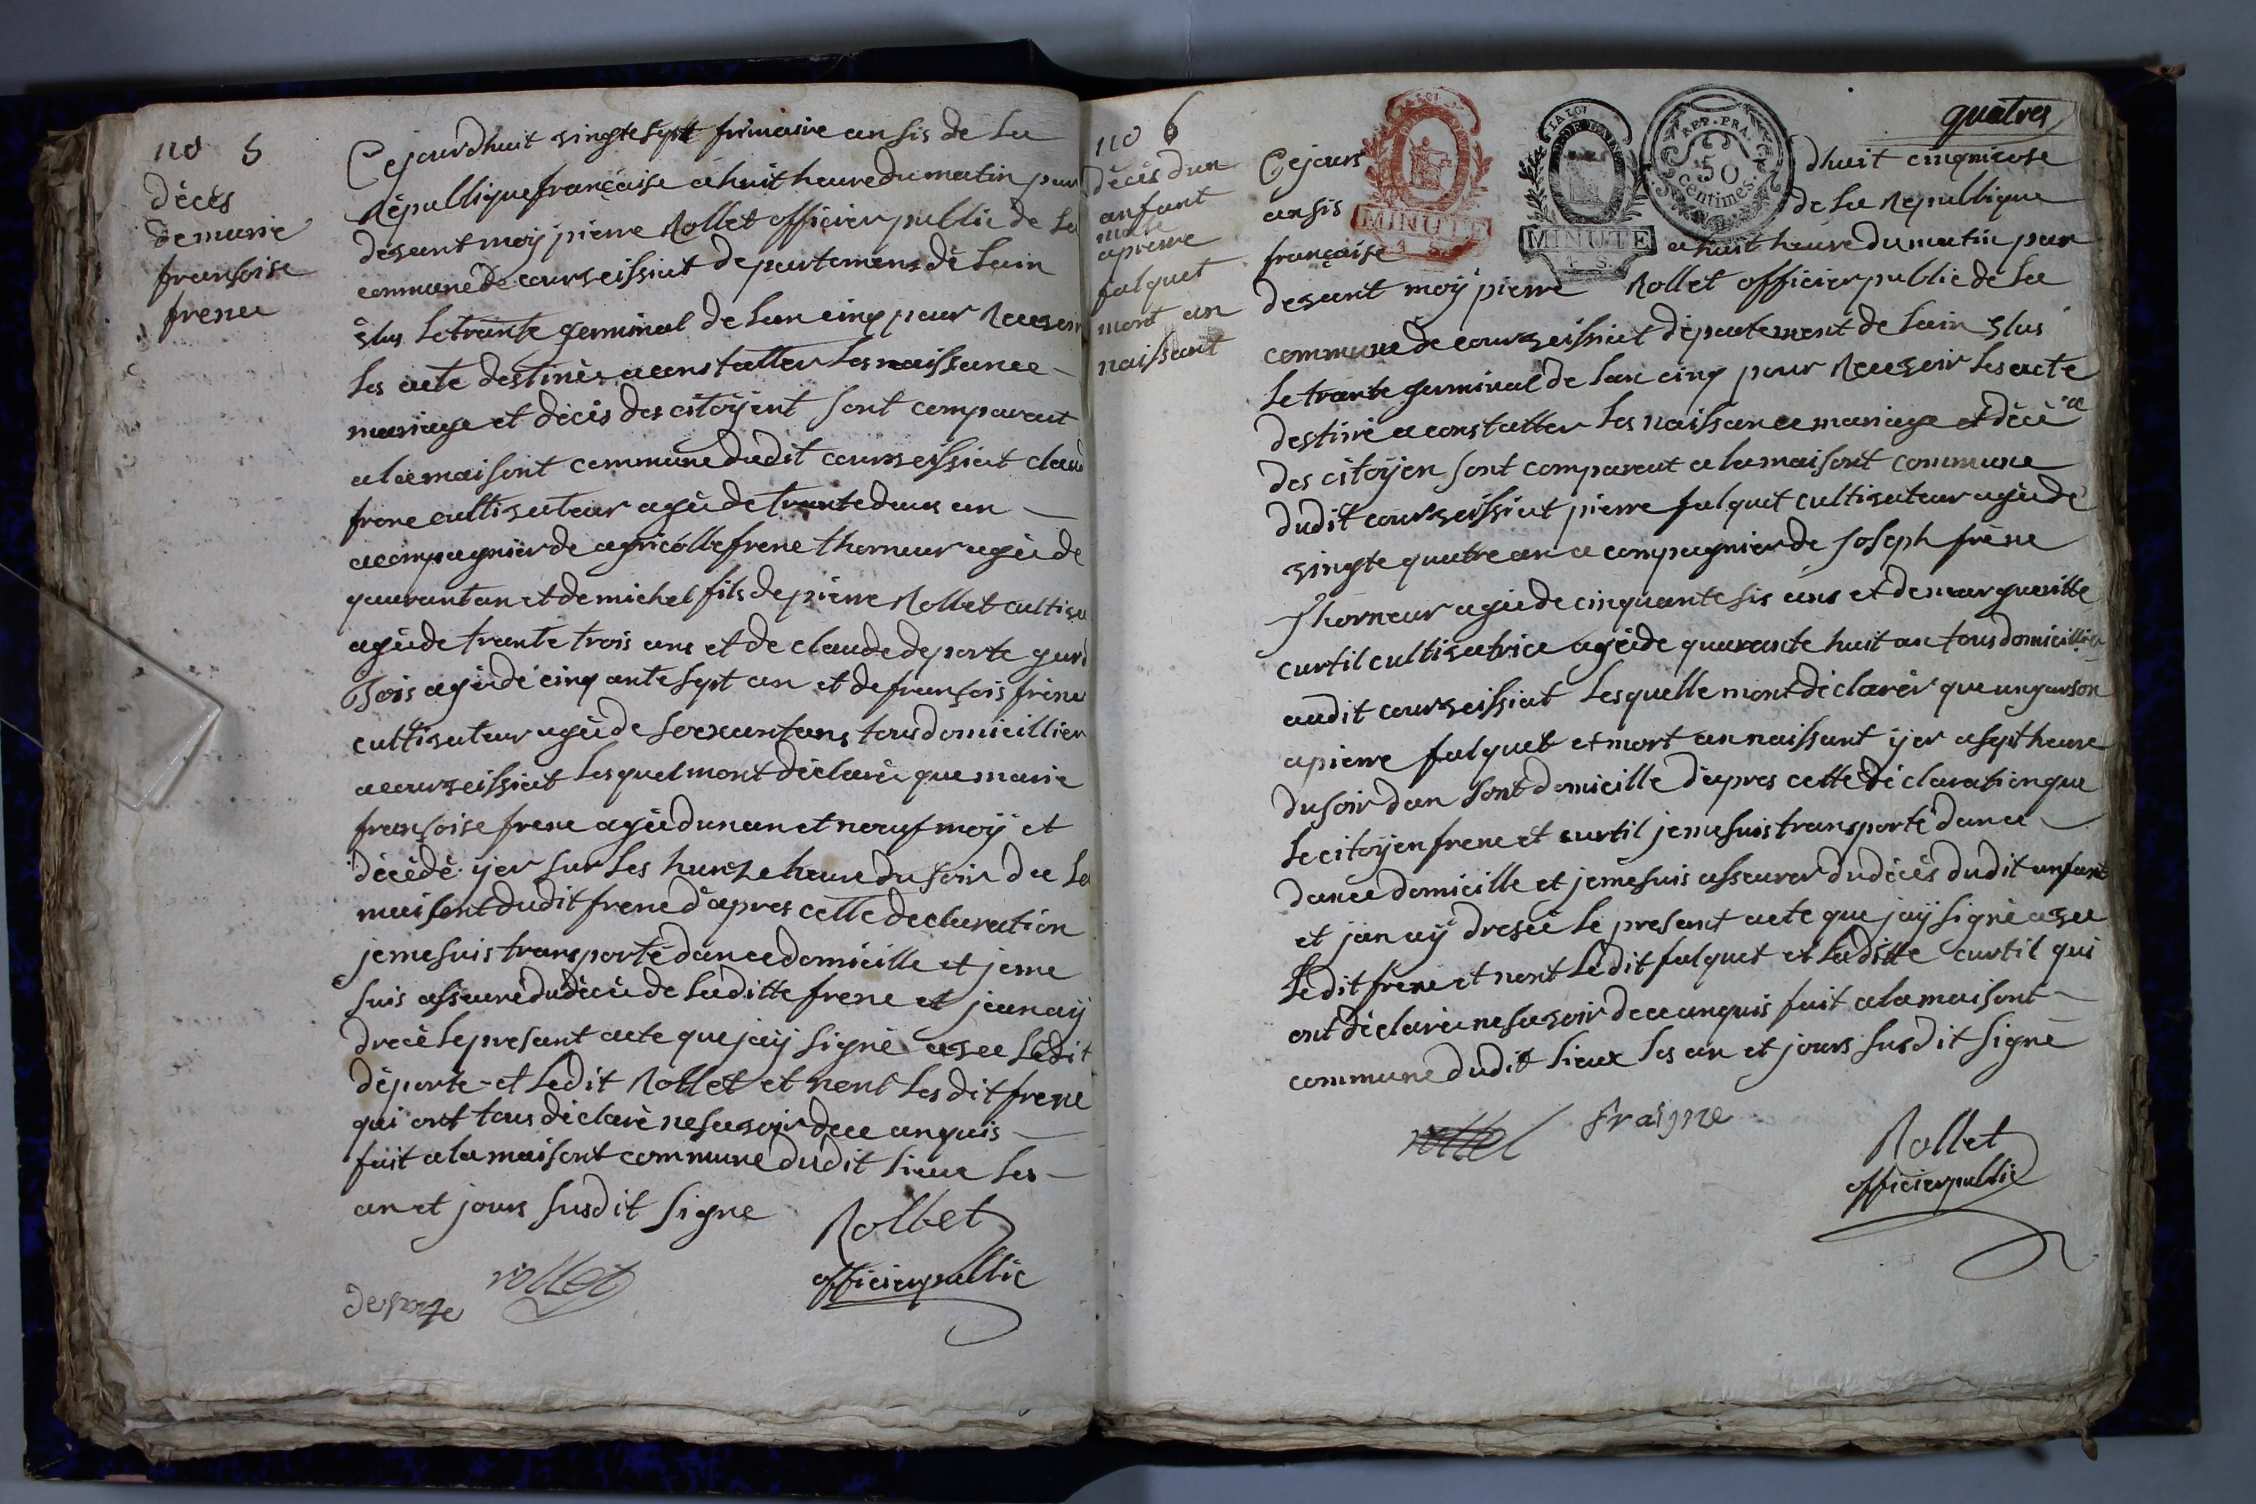 no 5
décés
de marie
fransoise
frene
Cejourdhuit vingtesept frimaire an sis de la
République française a huit heure du matin par
devant moÿ pierre Rollet officier public de la
commune de courveissiat departemens de lain
élus le trante germinal de lan cinq pour Recevoir
les acte destinés a constatter les naissance
mariage et décés des citoÿent sont comparut
a la maisont commune dudit courveissiat claud
frene cultivateur agée de trante deux an
acompagnier de agricolle frene thorneur agée de
quarantan et de michel fils de pierre Rollet cultiva
agée de trante trois ans et de claude deporte gard
Bois agée de cinqante sept an et de françois frene
cultivateur agée de soexantans tous domicillier
a courveissiat lesquel mont déclaré que marie
françoise frene agée dun an et neuf moÿ et
décédé ÿer sur les hunze heure du soir de la
maisont dudit frene dapres cette declaration
je me suis transporté dance domicille et je me
suis assauré du décé de laditte frene et jean aÿ
drecé le present acte que jaÿ signé avec ledit
déporte et ledit Rollet et nont les dit frene
qui ont tous déclaré ne savoir de ce anquis
fait a la maisont commune dudit lieux les
an et jours susdit signe
Rollet
officier public
rollet
desporte
quatres
no 6
décés dun
anfant
male
a pierre
falquet
mort an
naissant
LA LOI
MINUTE
LA LOI
MINUTE
REP. FRA.
50
centimes.
Cejours dhuit cinq nivose
an sis de la Republique
française a huit heure du matin par
devant moÿ pierre Rollet officier public de la
commune de courveissiat département de lain élus
le trante germinal de lan cinq pour Recevoir les acte
destiné a constatter les naissance mariage et décé
des citoÿen sont comparut a la maisont commune
dudit courveissiat pierre falquet cultivateur agée de
vingte quatre an acompagnier de Joseph frene
Thorneur agée de cinquante sis ans et de margueritte
curtil cultivatrice agée de quarante huit an tous domicillier
audit courveissiat lesquelle mont déclarér que un garson
a pierre falquet et mort an naissant ÿer a sept heure
du soir dan sont domicille dapres cette déclaration que
le citoÿen frene et curtil je me suis transporté dance
dance domicille et je me suis assaurer du décés dudit anfant
et jan aÿ dresée le present acte que jaÿ signé avec
ledit frene et nont ledit falquet et laditte curtil qui
ont déclarée ne savoir de ce anquis fait a la maisont
commune dudit lieux les an et jours susdit signé
rollet
fraigne
Rollet
officier public